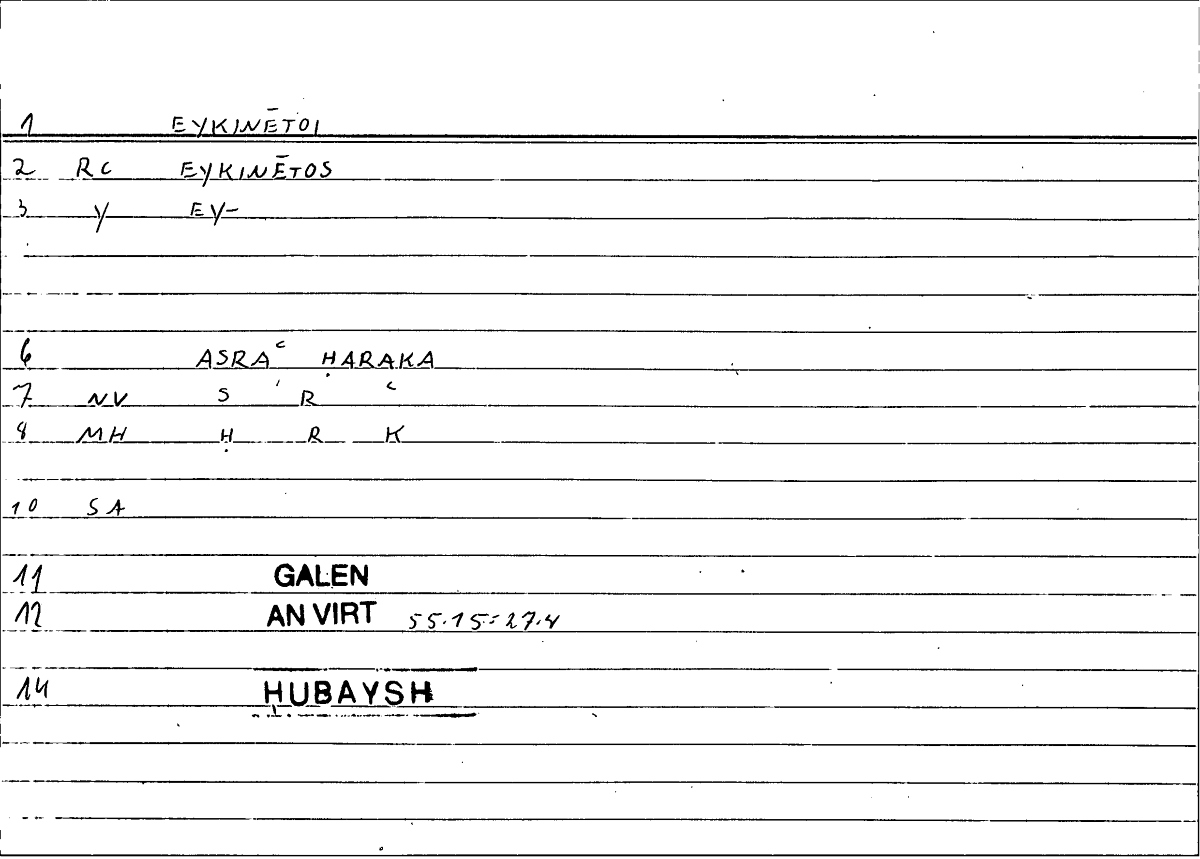 1 EYKINĒTOI
2 RC EYKINĒTOS
3 Y EY-
6 ASRAʿ ḤARAKA
7 NV S R ʿ
8 MH Ḥ R K
10 SA
11 GALEN
12 AN VIRT 55.15=27.4
14 ḤUBAYSH